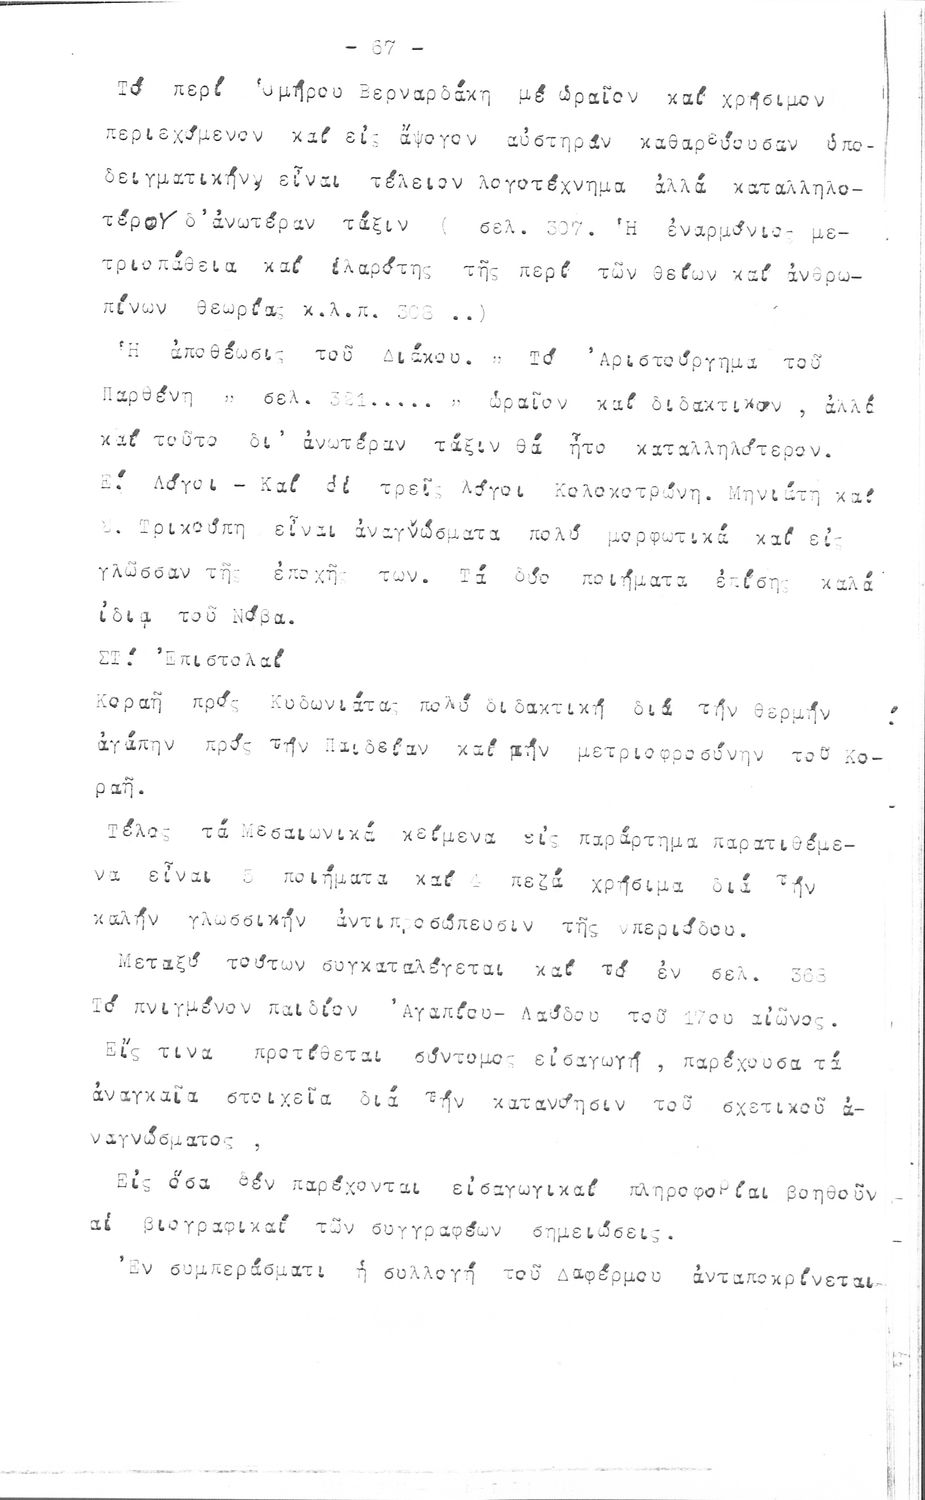 - 67 -
Τό περί Ὁμήρου Βερναρδάκη μέ ὡραῖον καί χρήσιμον
περιεχόμενον καί εἰς ἄψογον αὐστηράν καθαρεύουσαν ὑπο-
δειγματικήν, εἶναι τέλειον λογοτέχνημα ἀλλά καταλληλο-
τέρου δ'ἀνωτέραν τάξιν ( σελ. 307. Ἡ ἐναρμόνιος με-
τριοπάθεια καί ἱλαρότης τῆς περί τῶν θείων καί ἀνθρω-
πίνων θεωρίας κ.λ.π. 308 ..)
Ἡ ἀποθέωσις τοῦ Διάκου. " Τό Ἀριστούργημα τοῦ
Παρθένη " σελ. 321..... " ὡραῖον καί διδακτικον , ἀλλά
καί τοῦτο δι' ἀνωτέραν τάξιν θά ἦτο καταλληλότερον.
Ε! Λόγοι - Καί οἱ τρεῖς λόγοι Κολοκοτρώνη. Μηνιάτη καί
Σ. Τρικούπη εἶναι ἀναγνώσματα πολύ μορφωτικά καί εἰς
γλῶσσαν τῆς ἐποχῆς των. Τά δύο ποιήματα ἐπίσης καλά
ἰδια τοῦ Νόβα.
ΣΤ! Ἐπιστολαί
Κοραῆ πρός Κυδωνιάτας πολύ διδακτική διά τήν θερμήν
ἀγάπην πρός τήν Παιδείαν καί τήν μετριοφροσύνην τοῦ Κο-
ραῆ.
Τέλος τά Μεσαιωνικά κείμενα εἰς παράρτημα παρατιθέμε-
να εἶναι 5 ποιήματα καί 4 πεζά χρήσιμα διά τήν
καλήν γλωσσικήν ἀντιπροσώπευσιν τῆς περιόδου.
Μεταξύ τούτων συγκαταλέγεται καί τό ἐν σελ. 368
Τό πνιγμένον παιδίον Ἀγαπίου- Λαύδου τοῦ 17ου αἰῶνος.
Εἴς τινα προτίθεται σύντομος εἰσαγωγή , παρέχουσα τά
ἀναγκαῖα στοιχεῖα διά τήν κατανόησιν τοῦ σχετικοῦ ἀ-
ναγνώσματος ,
Εἰς ὅσα δέν παρέχονται εἰσαγωγικαί πληροφορίαι βοηθοῦν
αἱ βιογραφικαί τῶν συγγραφέων σημειώσεις.
Ἐν συμπεράσματι ἡ συλλογή τοῦ Δαφέρμου ἀνταποκρίνεται